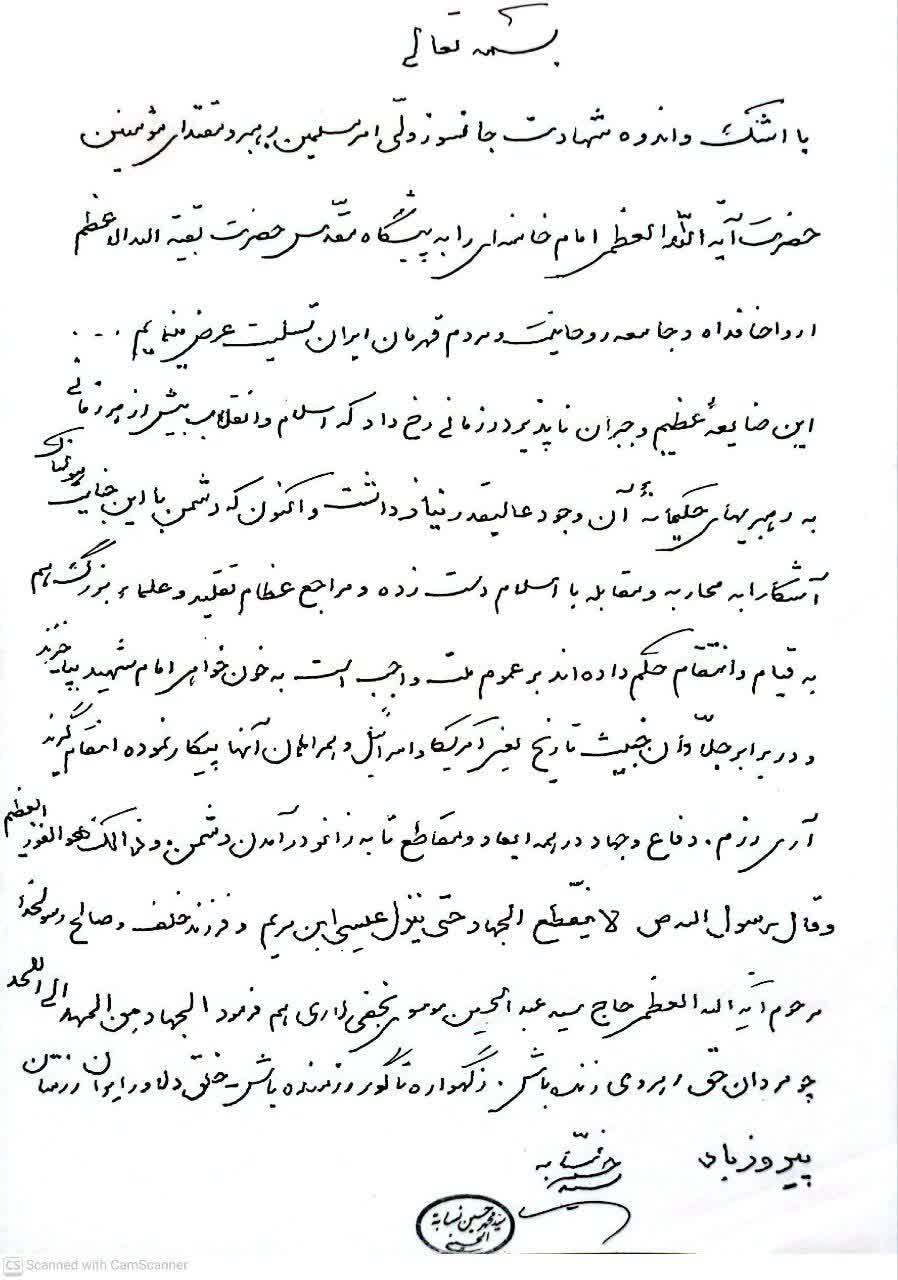 بسمه تعالی
با اشک و اندوه شهادت جانسوز ولّی امر مسلمین رهبر و مقتدای مؤمنین
حضرت آیه اللّه العظمی امام خامنه ای را به پیشگاه مقدّس حضرت بقیة الله الاعظم
ارواحنا فداه و جامعه روحانیت و مردم قهرمان ایران تسلیت عرض مینمایم ...
این ضایعهٔ عظیم و جبران ناپذیر در زمانی رخ داد که اسلام و انقلاب بیش از هر زمانی
به رهبریهای حکیمانهٔ آن وجود عالیقدر نیاز داشت و اکنون که دشمن با این جنایت هولناک
آشکارا به محاربه و مقابله با اسلام دست زده و مراجع عظام تقلید و علماء بزرگ هم
به قیام و انتقام حکم داده اند بر عموم ملت واجب است به خون خواهی امام شهید بپا خیزند
و در برابر جلّادان خبیث تاریخ یعنی آمریکا و اسرائیل و همراهان آنها پیکار نموده انتقام گیرند
آری رزم، دفاع و جهاد در همه ابعاد و مقاطع تا به زانو درآمدن دشمن. و ذالک هو الفوز العظیم
و قال رسول الله ص لا ینقطع الجهاد حتی ینزل عیسی ابن مریم و فرزند خلف و صالح رسولخدا
مرحوم آیة الله العظمی حاج سید عبدالحسین موسوی نجفی لاری هم فرمود الجهاد من المهد الی اللحد
چو مردان حق رهروی زنده باش. ز گهواره تا گور رزمنده باش خلق دلاور ایران
پیروز باد
سید محمد حسین نسابة
الحسنی
CS Scanned with CamScanner